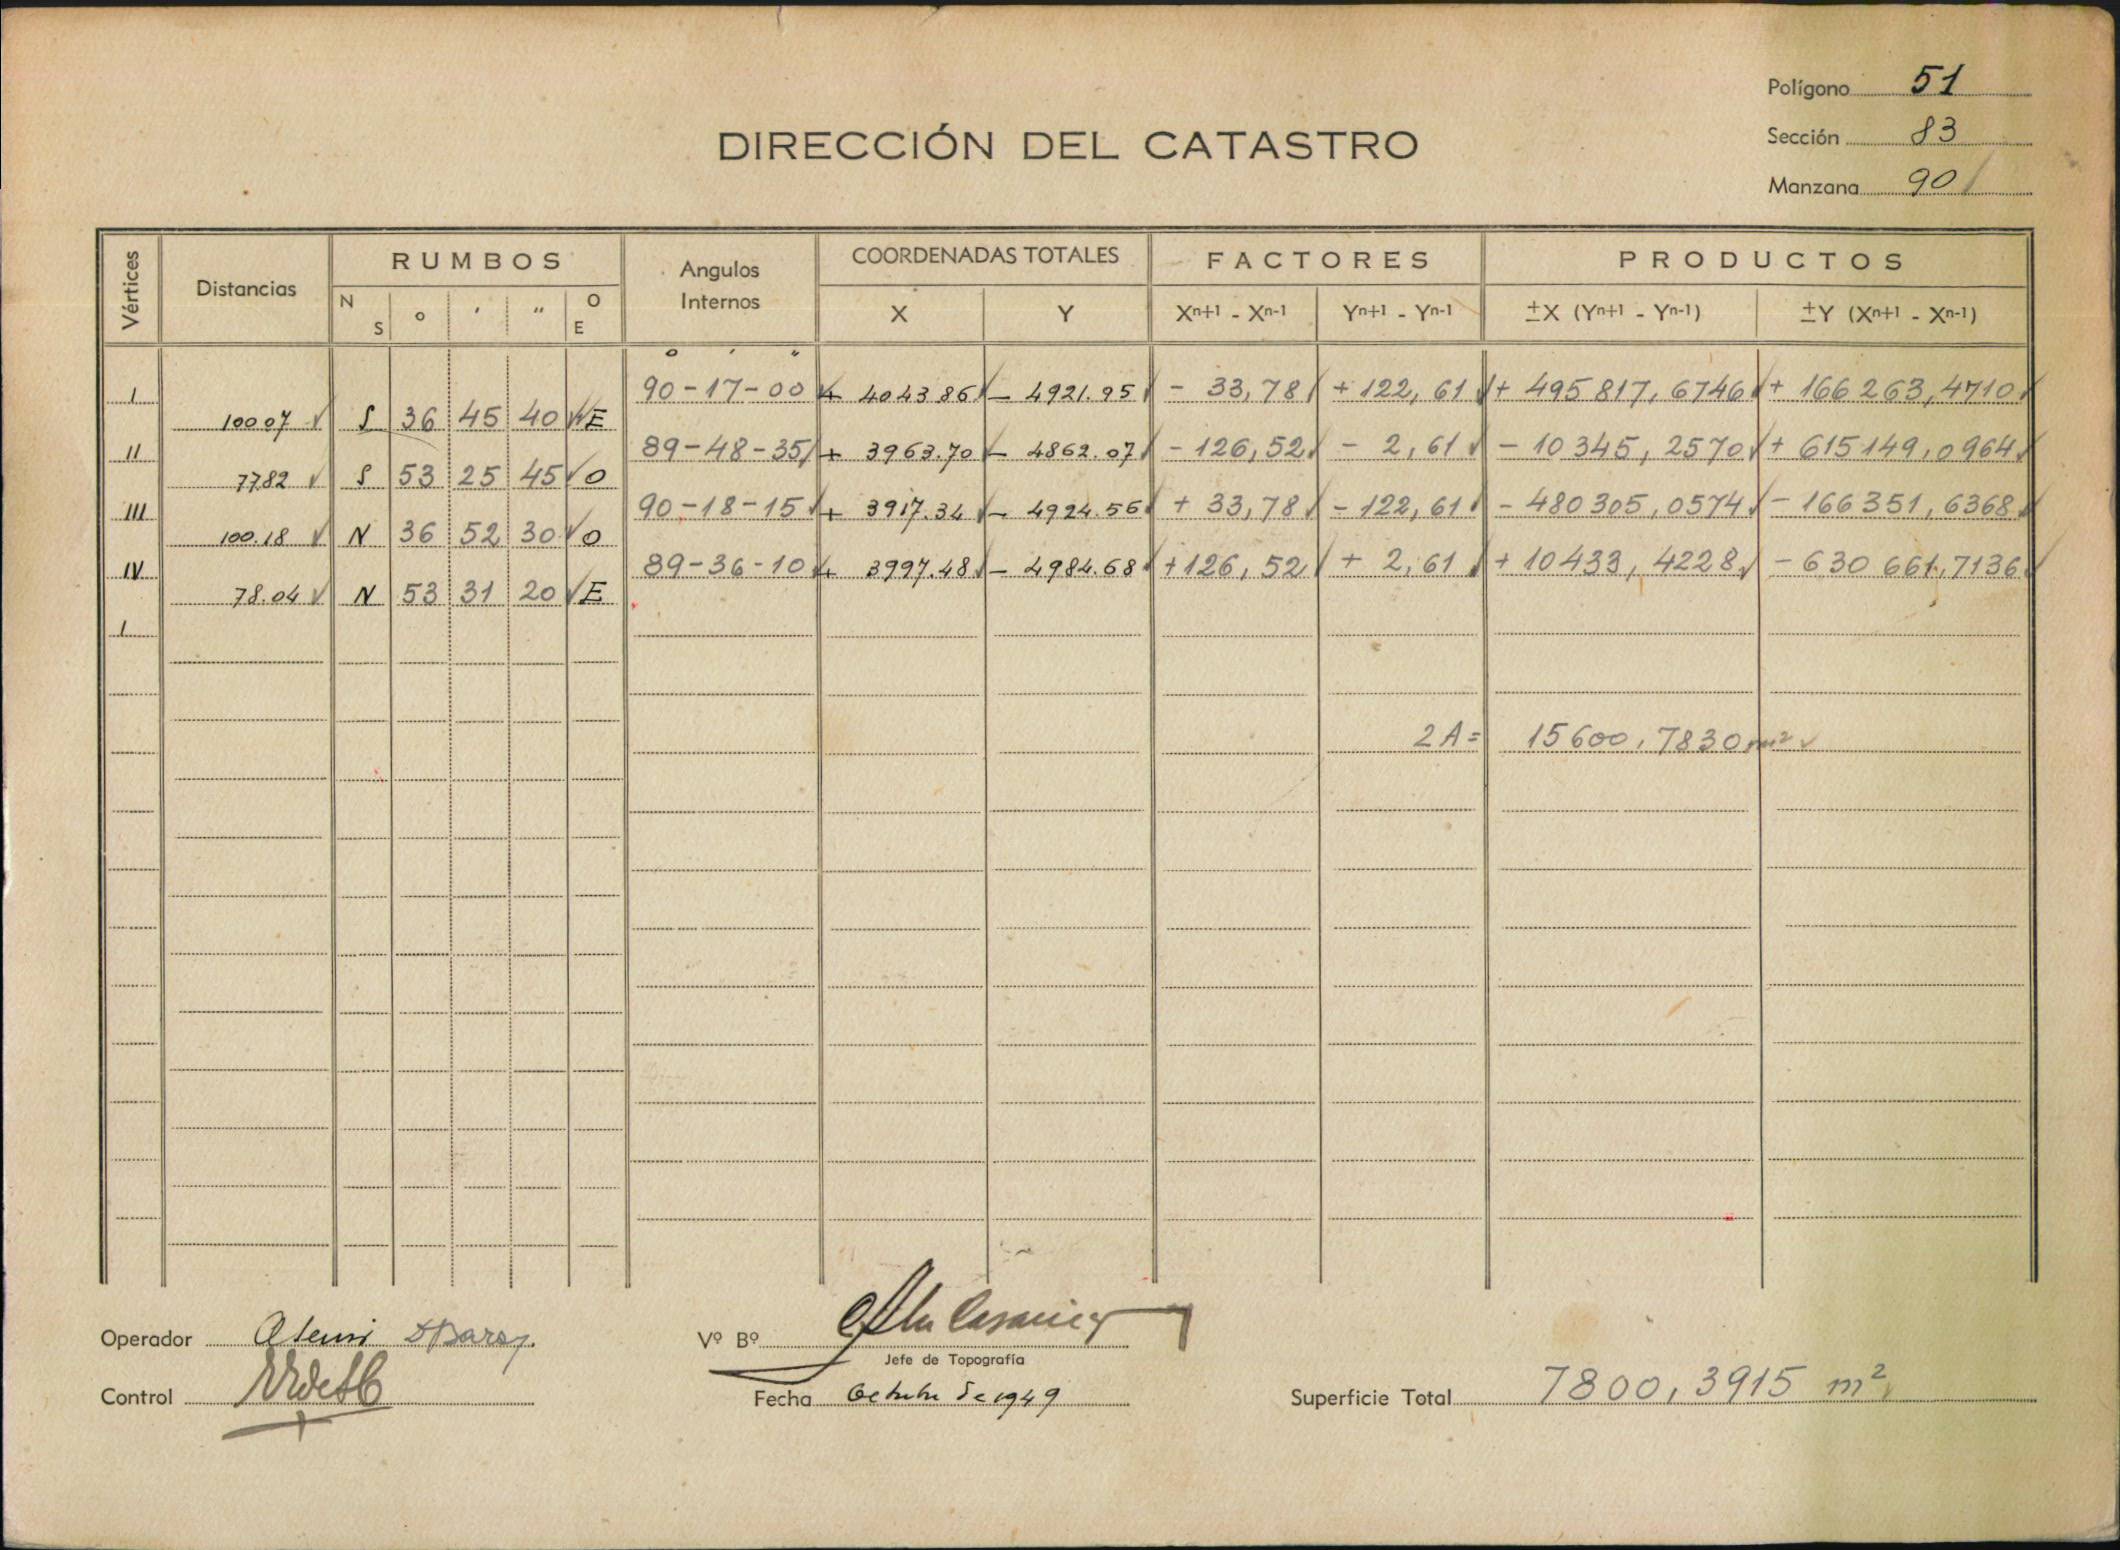 Polígono 51
DIRECCIÓN DEL CATASTRO
Sección 83
Manzana 90
Vértices Distancias RUMBOS Angulos Internos COORDENADAS TOTALES FACTORES PRODUCTOS
N S ° ' " O E X Y Xⁿ⁺¹ - Xⁿ⁻¹ Yⁿ⁺¹ - Yⁿ⁻¹ ±X (Yⁿ⁺¹ - Yⁿ⁻¹) ±Y (Xⁿ⁺¹ - Xⁿ⁻¹)
° ' "
I 90-17-00 + 4043.86 - 4921.95 - 33,78 + 122,61 + 495817,6746 + 166263,4710
100 07 S 36 45 40 E
II 89-48-35 + 3963.70 - 4862.07 - 126,52 - 2,61 - 10345,2570 + 615149,0964
77.82 S 53 25 45 O
III 90-18-15 + 3917.34 - 4924.56 + 33,78 - 122,61 - 480305,0574 - 166351,6368
100.18 N 36 52 30 O
IV 89-36-10 + 3997.48 - 4984.68 + 126,52 + 2,61 + 10433,4228 - 630661,7136
78.04 N 53 31 20 E
I
2A = 15600,7830 m²
Operador
Vº Bº
Jefe de Topografía
Control
Fecha Octubre de 1949
Superficie Total 7800,3915 m²